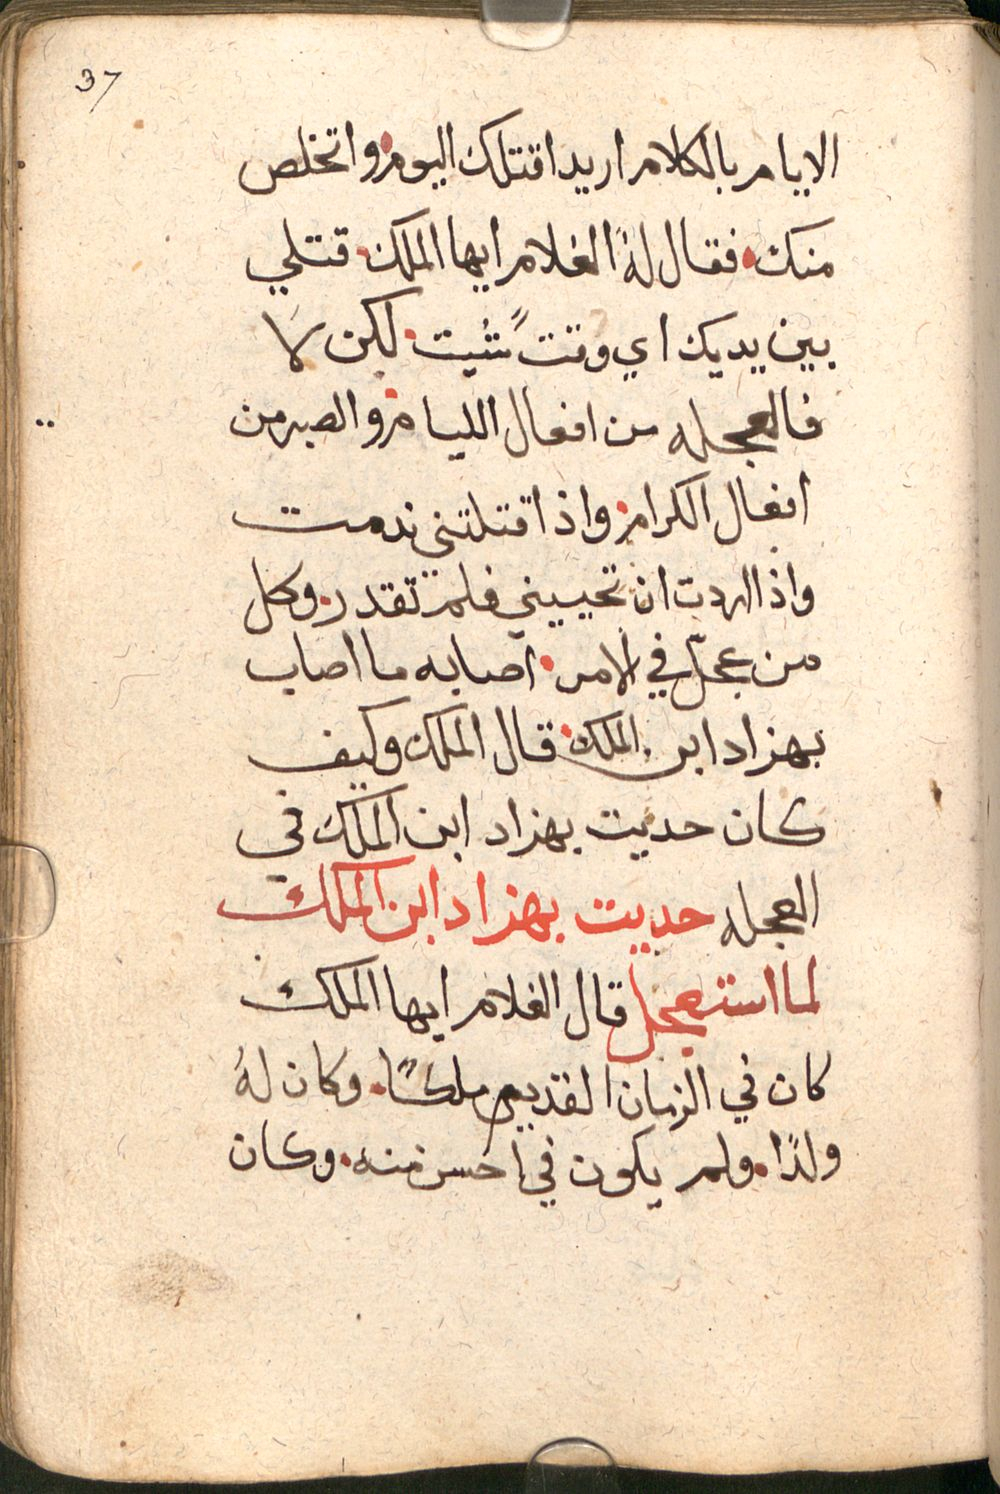 37
الايام بالكلام اريد اقتلك اليوم واتخلص
منك فقال لهُ الغلام ايها الملك قتلي
بين يديك اي وقتً شيت لكن لا
فالعجله من افعال الليام والصبر من
افعال الكرام واذا قتلتني ندمت
واذا اردت ان تحييني فلم تقدر وكل
من عجّل في الامر اصابه ما اصاب
بهزاد ابن الملك قال الملك وكيف
كان حديت بهزاد ابن الملك في
العجله حديت بهزاد ابن الملك
لما استعجل قال الغلام ايها الملك
كان في الزمان القديم ملكًا وكان لهُ
ولدًا ولم يكون في احسن منه وكان